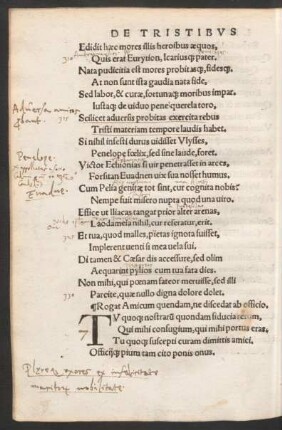 DE TRISTIBVS
Edidit hæc mores illis heroibus æquos,
Quis erat Eurytion, Icariusq; pater.
Nata pudicitia est mores probitasq;, fidesq;,
At non sunt ista gaudia nata side,
Sed labor, & curæ, fortunaq; moribus impar.
Iustaq; de uiduo pene querela toro,
Scilicet aduersis probitas exercita rebus
Tristi materiam tempore laudis habet,
Si nihil infesti durus uidisset Vlysses,
Penelope fœlix, sed sine laude, foret.
Victor Echionias si uir penetrasset in arces,
Forsitan Euadnen uix sua nosset humus,
Cum Pelia genitæ tot sint, cur cognita nobis?
Nempe fuit misero nupta quod una uiro.
Effice ut Iliacas tangat prior alter arenas,
Laodamia nihil, cur referatur, erit.
Et tua, quod malles, pietas ignota fuisset,
Implerent uenti si mea uela sui.
Di tamen & Cæsar dis accessure, sed olim
Aequarint pylios cum tua fata dies.
Non mihi, qui pœnam fateor meruisse, sed illi
Parcite, quæ nullo digna dolore dolet.
¶ Rogat Amicum quendam, ne discedat ab officio.
TV quoq; nostrarū quondam fiducia rerum,
Qui mihi confugium, qui mihi portus eras,
Tu quoq; suscepti curam dimittis amici.
Officijq; pium tam cito ponis onus.
Penelope
Euadne.